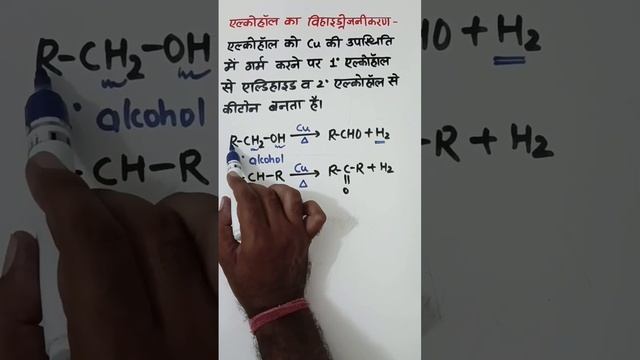 एल्कोहॉल का विहाइड्रोजनीकरण-
एल्कोहॉल को Cu की उपस्थिति
में गर्म करने पर 1° एल्कोहॉल
से एल्डिहाइड व 2° एल्कोहॉल से
कीटोन बनता है।
R-CH₂-OH —Cu/Δ→ R-CHO + H₂
° alcohol
-CH-R —Cu/Δ→ R-C-R + H₂
॥
O
R-CH₂-OH
° alcohol
CH-R
OH
+ H₂
-R + H₂